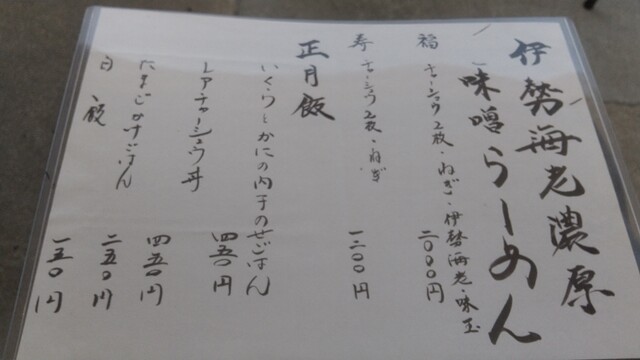 伊勢海老濃厚
味噌らーめん
福 チャーシュウ2枚・ねぎ・伊勢海老・味玉 二000円
寿 チャーシュウ2枚・ねぎ 一二00円
正月飯
いくらとかにの内子のせごはん 四五0円
レアチャーシュウ丼 四五0円
たまごかけごはん 二五0円
白飯 一五0円